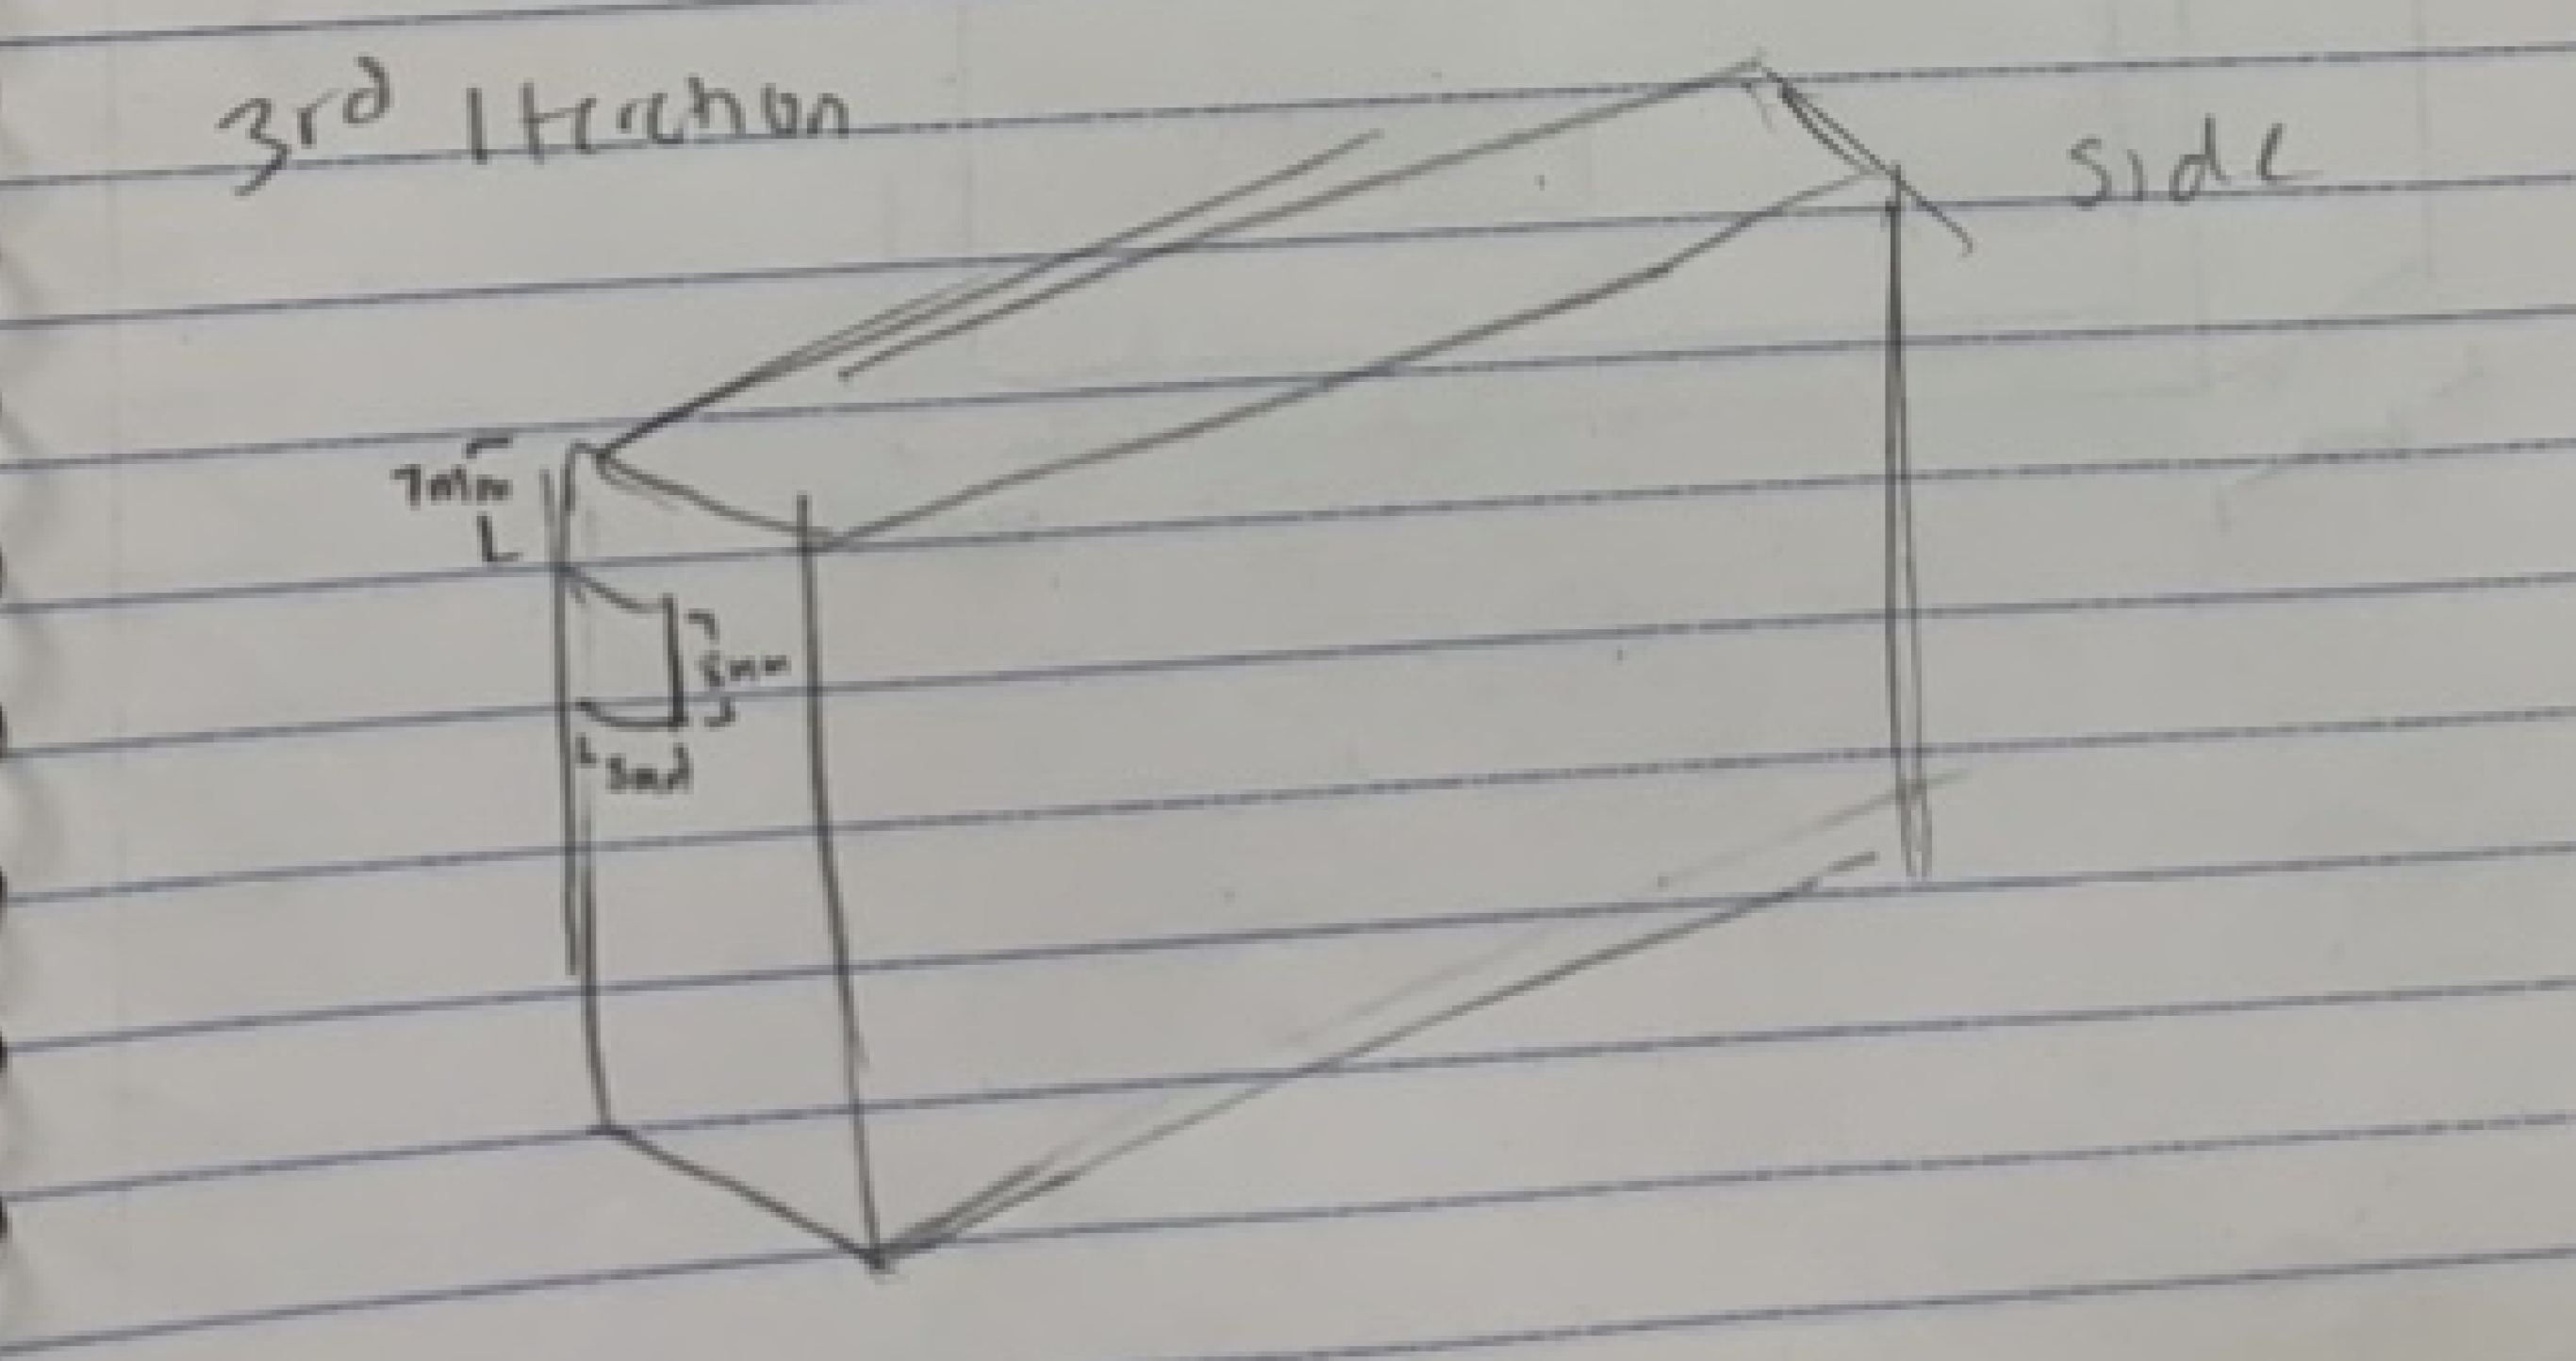 3rd Iteration
Side
7mm
8mm